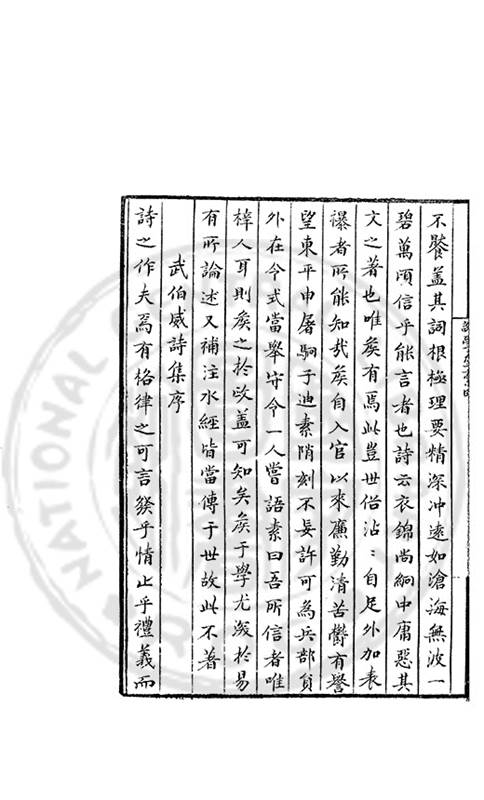 不嚴蓋其詞根極理要精深冲遠如滄海無波一
碧萬頃信乎能言者也詩云衣錦尚絅中庸惡其
文之著也唯矦有焉此豈世俗沾〻自足外加表
襮者所能知哉矦自入官以來廉勤清苦欝有譽
望東平申屠駉子迪素陗刻不妄許可為兵部貟
外在令式當舉守令一人嘗語素曰吾所信者唯
梓人耳則矦之於政蓋可知矣矦于學尤邃於易
有所論述又補注水經皆當傳于世故此不著
武伯威詩集序
詩之作夫焉有格律之可言發乎情止乎禮義而
NATIONAL